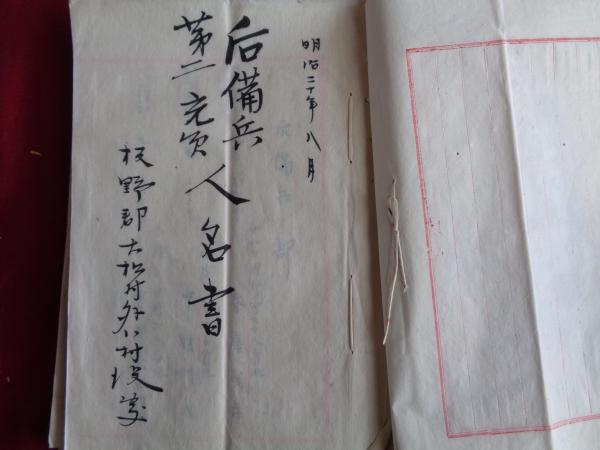 明治二十年八月
后備兵
第二充員
人名書
板野郡大松村外八村役塲